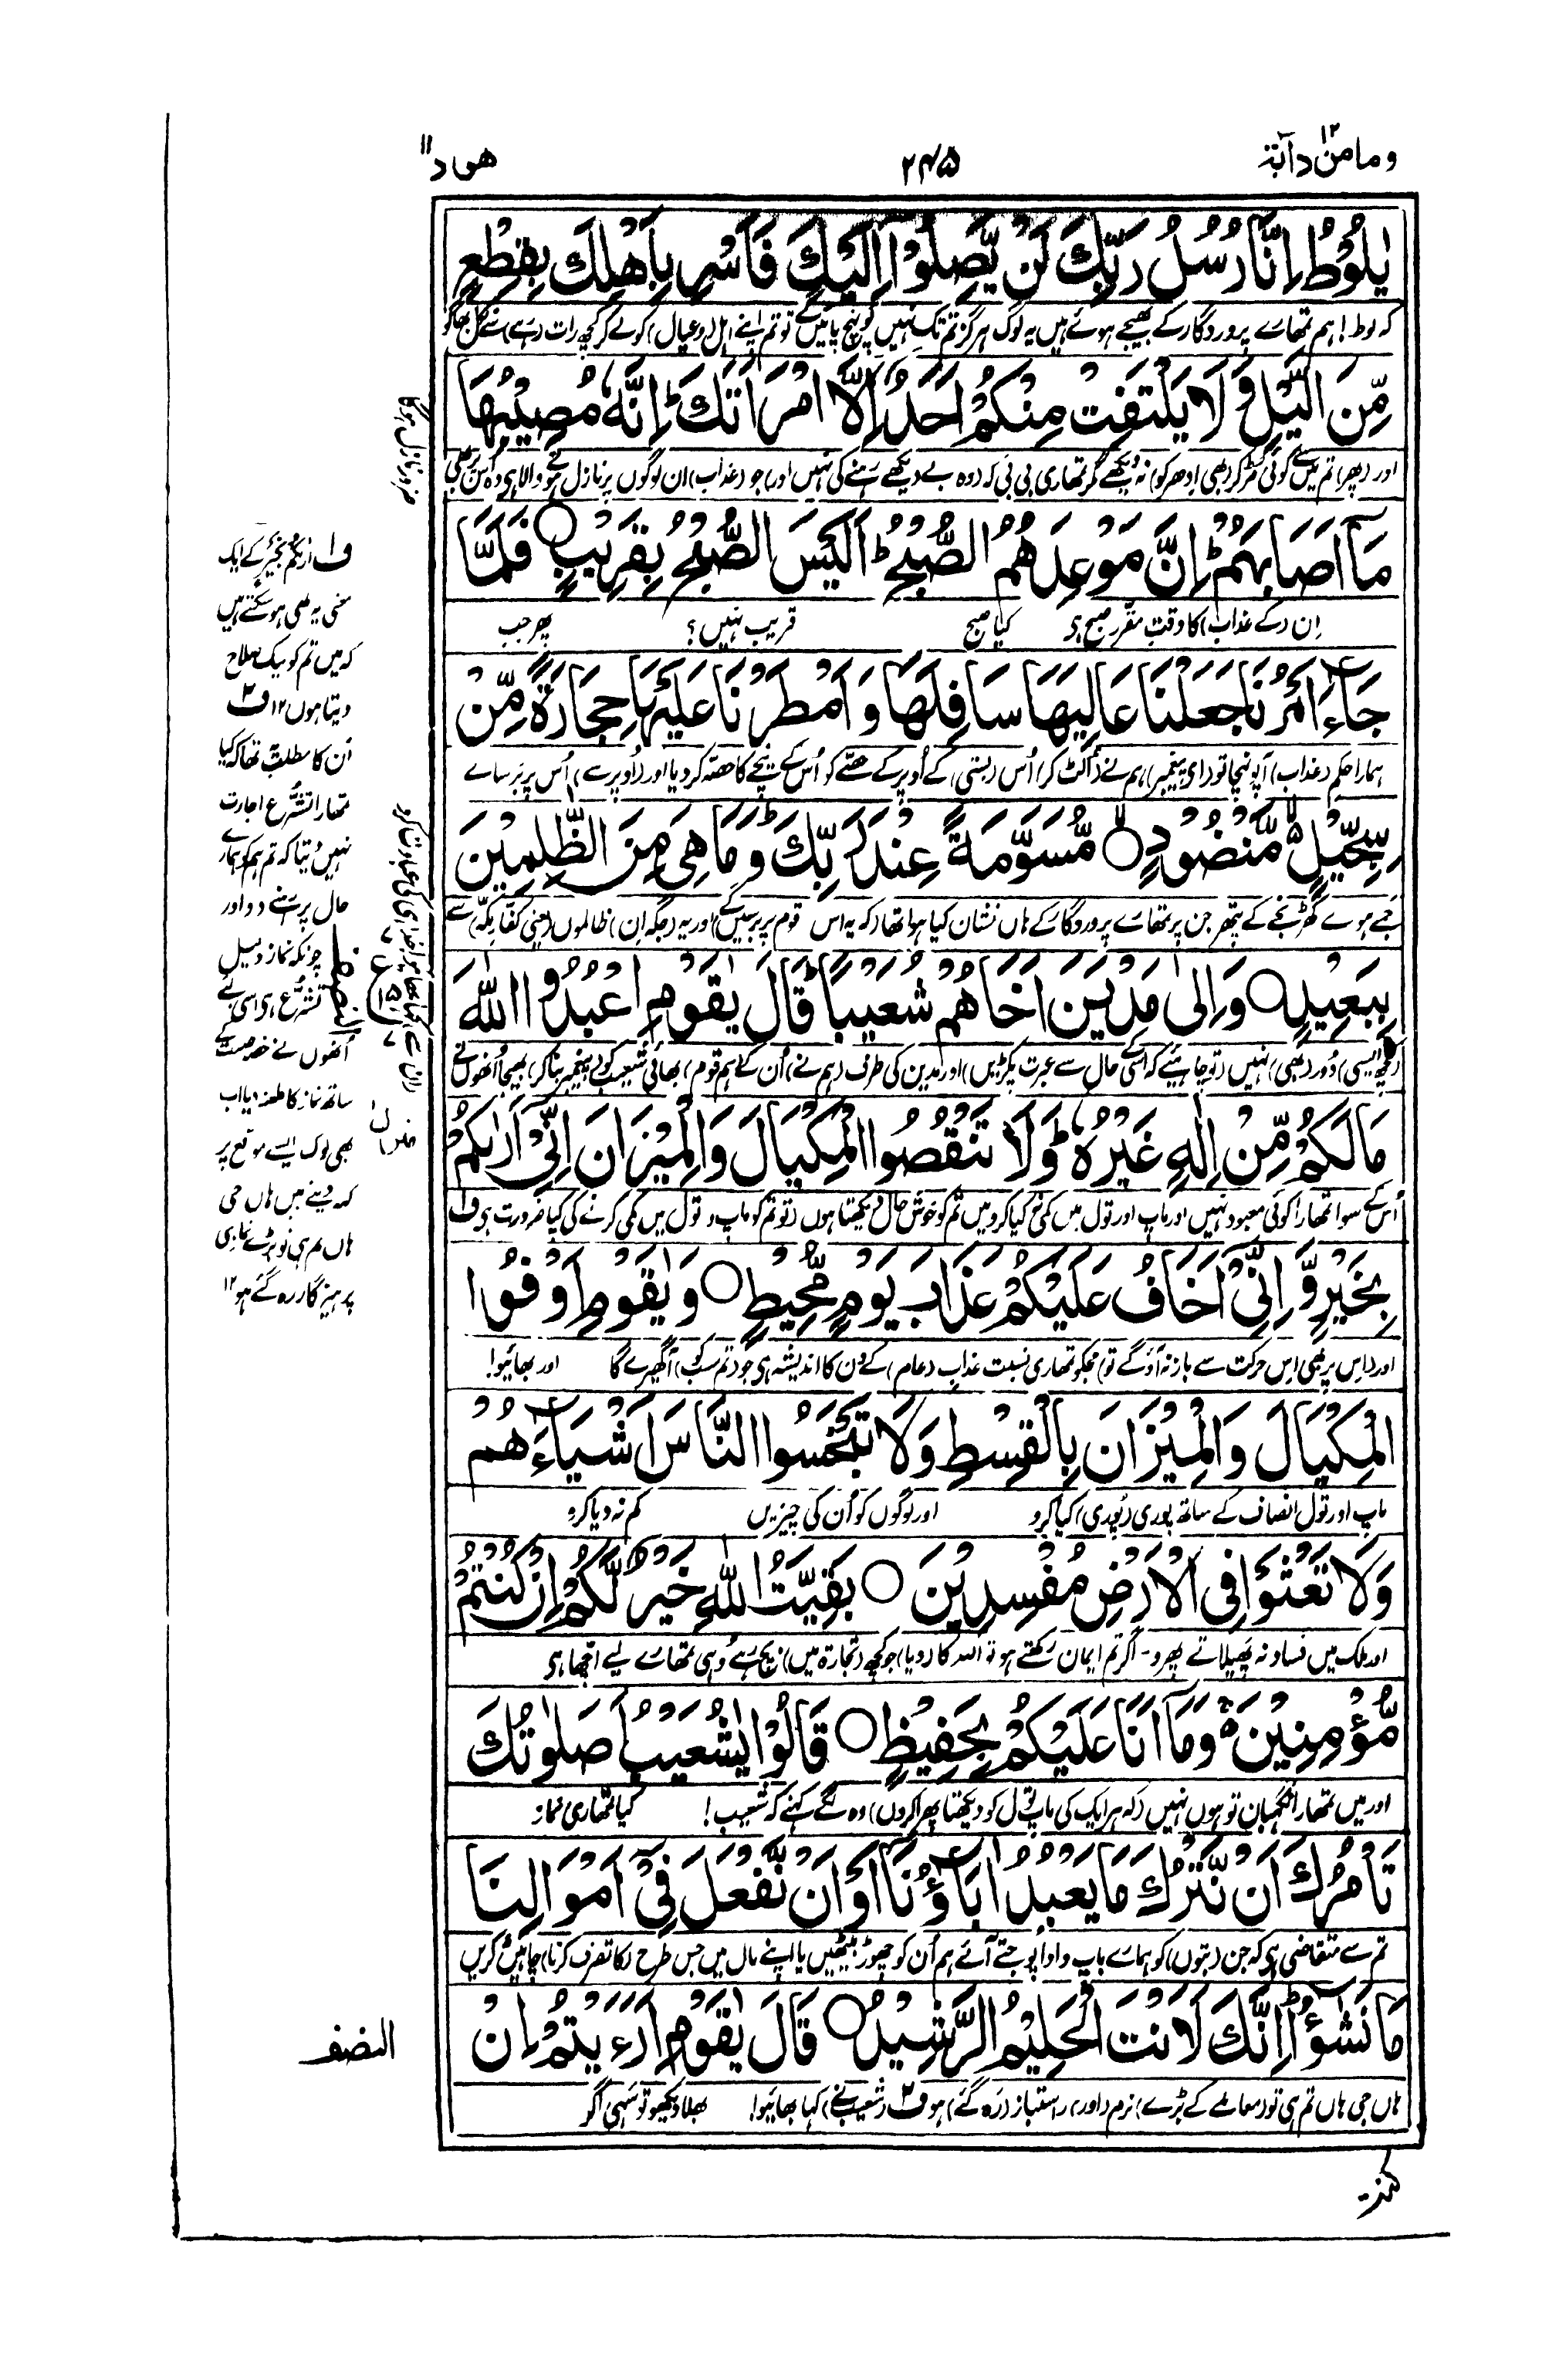 وما من دآبة ١٢
٢٤٥
هود ١١
يٰلُوْطُ اِنَّا رُسُلُ رَبِّكَ لَنْ يَّصِلُوْٓا اِلَيْكَ فَاَسْرِ بِاَهْلِكَ بِقِطْعٍ
کہ لوط! ہم تمھارے پروردگار کے بھیجے ہوئے ہیں یہ لوگ ہرگز تم تک نہیں پہنچ پائیں گے تو تم اپنے اہل (و عیال) کو لے کر کچھ رات (رہے) سے نکل بھاگو
مِّنَ الَّيْلِ وَلَا يَلْتَفِتْ مِنْكُمْ اَحَدٌ اِلَّا امْرَاَتَكَ ؕ اِنَّهٗ مُصِيْبُهَا
اور (پھر) تم میں سے کوئی مڑ کر (بھی) ادھر کو) نہ دیکھے مگر تمھاری بی بی کہ (وہ بے دیکھے رہنے کی نہیں اور) جو (عذاب) ان لوگوں پر نازل ہونے والا ہی وہ اس پر بھی
ضرور نازل ہوگا
مَآ اَصَابَهُمْ ؕ اِنَّ مَوْعِدَهُمُ الصُّبْحُ ؕ اَلَيْسَ الصُّبْحُ بِقَرِيْبٍ ○ فَلَمَّا
اِن (کے عذاب) کا وقتِ مقرر صبح ہی کیا صبح قریب نہیں؟ پھر جب
جَآءَ اَمْرُنَا جَعَلْنَا عَالِيَهَا سَافِلَهَا وَاَمْطَرْنَا عَلَيْهَا حِجَارَةً مِّنْ
ہمارا حکم (عذاب) آ پونہچا تو (ای پیغمبر) ہم نے (اُلٹ کر) اُس (بستی) کے اُوپر کے حصّے کو اُس کے نیچے کا حصّہ کر دیا اور (اُوپر سے) اُس پر برسائے
سِجِّيْلٍ ۙ مَّنْضُوْدٍ ○ مُّسَوَّمَةً عِنْدَ رَبِّكَ ؕ وَمَا هِيَ مِنَ الظّٰلِمِيْنَ
جمے ہوے کھڑنجے کے پتھر جن پر تمھارے پروردگار کے ہاں نشان کیا ہوا تھا (کہ یہ اس قوم پر برسیں گے) اور یہ (جگہ ان) ظالموں (یعنی کفارِ مکہ) سے
بِبَعِيْدٍ ○ وَاِلٰى مَدْيَنَ اَخَاهُمْ شُعَيْبًا ؕ قَالَ يٰقَوْمِ اعْبُدُوا اللّٰهَ
(کچھ ایسی) دور (بھی) نہیں (تو چاہیے کہ اُسکے حال سے عبرت پکڑیں) اور مدین کی طرف (ہم نے) اُن کے (ہم قوم) بھائی شعیب کو (پیغمبر بنا کر) بھیجا اُنھوں نے
مَا لَكُمْ مِّنْ اِلٰهٍ غَيْرُهٗ ؕ وَلَا تَنْقُصُوا الْمِكْيَالَ وَالْمِيْزَانَ اِنِّيْٓ اَرٰىكُمْ
اُس کے سوا تمھارا کوئی معبود نہیں اور ماپ اور تول میں کمی نہ کیا کرو میں تم کو خوش حال دیکھتا ہوں (تو تم کو ماپ و تول میں کمی کرنے کی کیا ضرورت ہی ف۱
بِخَيْرٍ وَّاِنِّيْٓ اَخَافُ عَلَيْكُمْ عَذَابَ يَوْمٍ مُّحِيْطٍ ○ وَيٰقَوْمِ اَوْفُوا
اور (اس پر بھی اس حرکت سے باز نہ آؤ گے تو) مجکو تمھاری نسبت عذابِ (عام) کے دن کا اندیشہ ہی جو (تم سب کو) آگھیرے گا اور بھائیو!
الْمِكْيَالَ وَالْمِيْزَانَ بِالْقِسْطِ وَلَا تَبْخَسُوا النَّاسَ اَشْيَآءَهُمْ
ماپ اور تول انصاف کے ساتھ پوری (پوری) کیا کرو اور لوگوں کو اُن کی چیزیں کم نہ دیا کرو
وَلَا تَعْثَوْا فِي الْاَرْضِ مُفْسِدِيْنَ ○ بَقِيَّتُ اللّٰهِ خَيْرٌ لَّكُمْ اِنْ كُنْتُمْ
اور ملک میں فساد نہ پھیلاتے پھرو۔ اگر تم ایمان رکھتے ہو تو اللہ کا (دیا) جو کچھ (تجارۃ میں) بچ رہے وہی تمھارے لیے اچھا ہی
مُّؤْمِنِيْنَ ۚ وَمَآ اَنَا عَلَيْكُمْ بِحَفِيْظٍ ○ قَالُوْا يٰشُعَيْبُ اَصَلٰوتُكَ
اور میں تمھارا نگہبان تو ہوں نہیں (کہ ہر ایک کی ماپ تول کو دیکھتا پھرا کروں) وہ لگے کہنے کہ شعیب! کیا تمھاری نماز
تَاْمُرُكَ اَنْ نَّتْرُكَ مَا يَعْبُدُ اٰبَآؤُنَآ اَوْ اَنْ نَّفْعَلَ فِيْٓ اَمْوَالِنَا
تم سے متقاضی ہی کہ جن (بتوں) کو ہمارے باپ دادا پوجتے آئے ہم اُن کو چھوڑ بیٹھیں یا اپنے مال میں جس طرح (کا تصرف کرنا) چاہیں نہ کریں
مَا نَشٰٓؤُا ؕ اِنَّكَ لَاَنْتَ الْحَلِيْمُ الرَّشِيْدُ ○ قَالَ يٰقَوْمِ اَرَءَيْتُمْ اِنْ
ہاں جی ہاں تم ہی تو (معاملے کے بڑے) نرم (اور) راستباز (رہ گئے) ہو ف۲ (شعیب نے) کہا بھائیو! بھلا دیکھو تو سہی اگر
ف۱ اراکم بخیر کے ایک
معنی یہ بھی ہو سکتے ہیں
کہ میں تم کو نیک صلاح
دیتا ہوں ۱۲ ف۲
اُن کا مطلب تھا کہ کیا
تمھارا تشرُّع اجازت
نہیں دیتا کہ تم ہم کو ہمارے
حال پر رہنے دو اور
چونکہ نماز دلیل
تشرُّع ہی اسی لیے
اُنھوں نے خصوصیت کے
ساتھ نماز کا طعنہ دیا اب
بھی لوگ ایسے موقع پر
کہ دیتے ہیں ہاں جی
ہاں تم ہی تو بڑے نمازی
پرہیز گار رہ گئے ہو ۱۲
منزل ۳
النصف